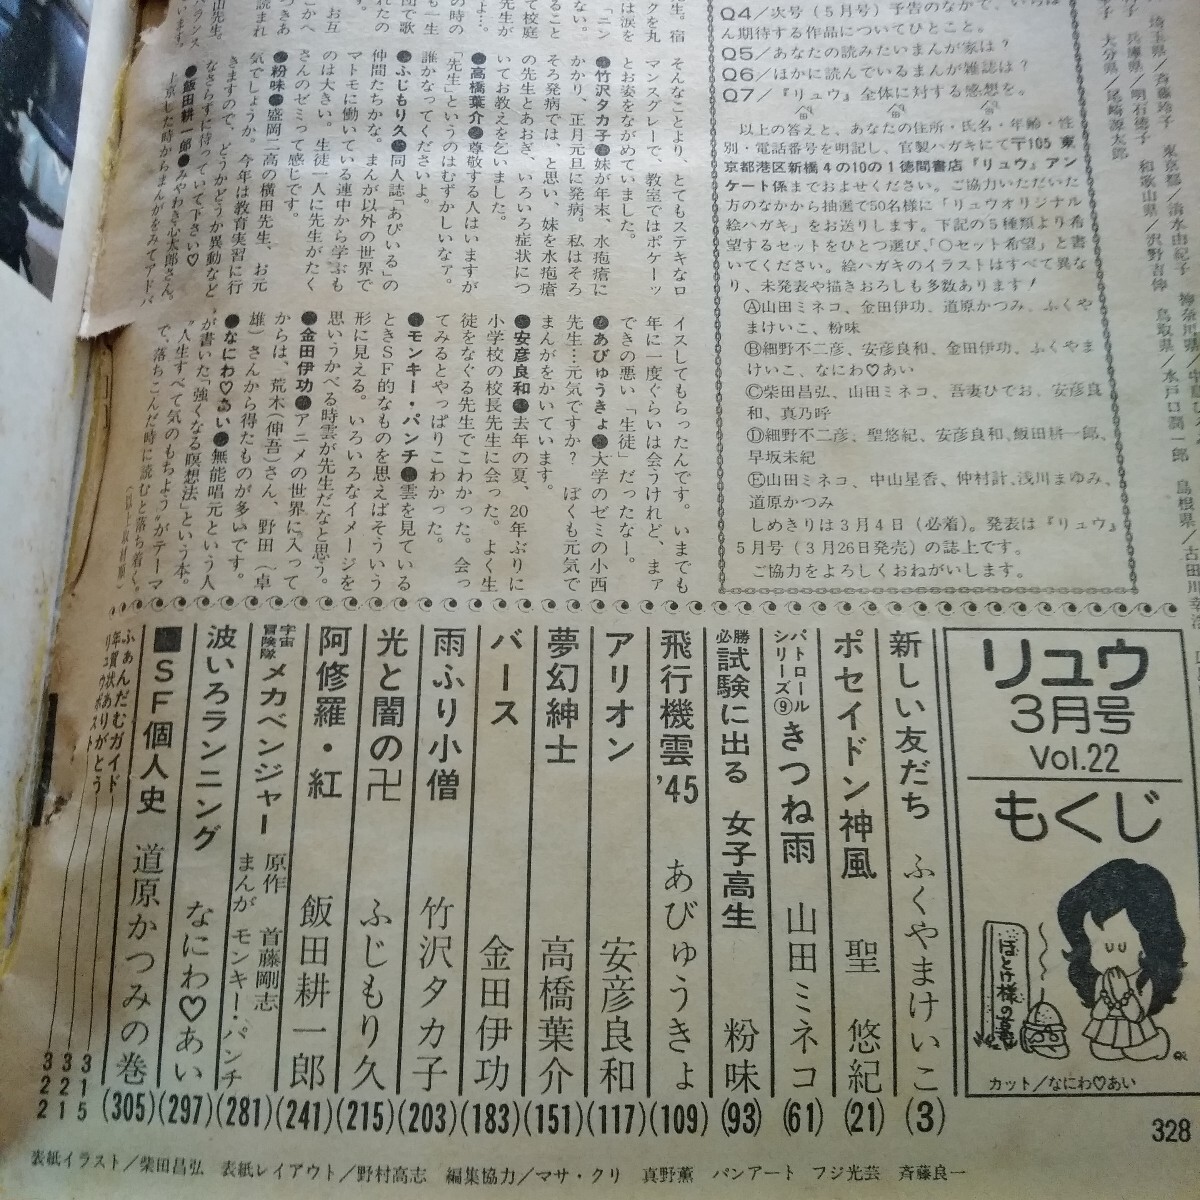 Q4／次号(5月号)予告のなかで、いちば
ん期待する作品についてひとこと。
Q5／あなたの読みたいまんが家は？
Q6／ほかに読んでいるまんが雑誌は？
Q7／『リュウ』全体に対する感想を。
以上の答えと、あなたの住所・氏名・年齢・性
別・電話番号を明記し、官製ハガキにて〒105 東
京都港区新橋4の10の1徳間書店『リュウ』アン
ケート係までおよせください。ご協力いただいた
方のなかから抽選で50名様に「リュウオリジナル
絵ハガキ」をお送りします。下記の5種類より希
望するセットをひとつ選び、「〇セット希望」と書
いてください。絵ハガキのイラストはすべて異な
り、未発表や描きおろしも多数あります！
Ⓐ山田ミネコ、金田伊功、道原かつみ、ふくや
まけいこ、粉味
Ⓑ細野不二彦、安彦良和、金田伊功、ふくやま
けいこ、なにわ♡あい
Ⓒ柴田昌弘、山田ミネコ、吾妻ひでお、安彦良
和、真乃呼
Ⓓ細野不二彦、聖悠紀、安彦良和、飯田耕一郎、
早坂未紀
Ⓔ山田ミネコ、中山星香、仲村計、浅川まゆみ、
道原かつみ
しめきりは3月4日(必着)。発表は『リュウ』
5月号(3月26日発売)の誌上です。
ご協力をよろしくおねがいします。
そんなことより、とてもステキなロ
マンスグレーで、教室ではポケーッ
とお姿をながめていました。
●竹沢タカ子●妹が年末、水疱瘡に
かかり、正月元旦に発病。私はそろ
そろ発病では、と思い、妹を水疱瘡
の先生とあおぎ、いろいろ症状につ
いてお教えを乞いました。
●高橋葉介●尊敬する人はいますが
「先生」というのはむずかしいなァ。
誰かなってくださいよ。
●ふじもり久●同人誌「あぴいる」の
仲間たちかな。まんが以外の世界で
マトモに働いている連中から学ぶも
のは大きい。生徒一人に先生がたく
さんのゼミって感じです。
●粉味●盛岡二高の横田先生、お元
気でしょうか。今年は教育実習に行
きますので、どうかどうか異動など
なさらずに待っていて下さい♡
●飯田耕一郎●みやわき心太郎さん。
上京した時からまんがをみてアドバ
イスしてもらったんです。いまでも
年に一度ぐらいは会うけれど、まァ
できの悪い「生徒」だったなー。
●あびゅうきょ●大学のゼミの小西
先生…元気ですか？ ぼくも元気で
まんがをかいています。
●安彦良和●去年の夏、20年ぶりに
小学校の校長先生に会った。よく生
徒をなぐる先生でこわかった。会っ
てみるとやっぱりこわかった。
●モンキー・パンチ●雲を見ている
ときSF的なものを思えばそういう
形に見える。いろいろなイメージを
思いうかべる時雲が先生だなと思う。
●金田伊功●アニメの世界に入って
からは、荒木(伸吾)さん、野田(卓
雄)さんから得たものが多いです。
●なにわ♡あい●無能唱元という人
が書いた「強くなる瞑想法」という本。
"人生すべて気のもちよう"がテーマ
で、落ちこんだ時に読むと落ち着く。
リュウ
3月号
Vol.22
もくじ
ほとけ様の
カット／なにわ♡あい
新しい友だち ふくやまけいこ (3)
ポセイドン神風 聖 悠紀 (21)
パトロールシリーズ⑨ きつね雨 山田ミネコ (61)
必勝 試験に出る 女子高生 粉味 (93)
飛行機雲'45 あびゅうきょ (109)
アリオン 安彦良和 (117)
夢幻紳士 高橋葉介 (151)
バース 金田伊功 (183)
雨ふり小僧 竹沢タカ子 (203)
光と闇の卍 ふじもり久 (215)
阿修羅・紅 飯田耕一郎 (241)
宇宙冒険隊 メカベンジャー 原作 首藤剛志 まんが モンキー・パンチ (281)
波いろランニング なにわ♡あい (297)
■SF個人史 道原かつみの巻 (305)
ふぁんだむガイド 315
年賀状ありがとう 321
リュウポスト 322
328
表紙イラスト／柴田昌弘 表紙レイアウト／野村高志 編集協力／マサ・クリ 真野薫 バンアート フジ光芸 斉藤良一